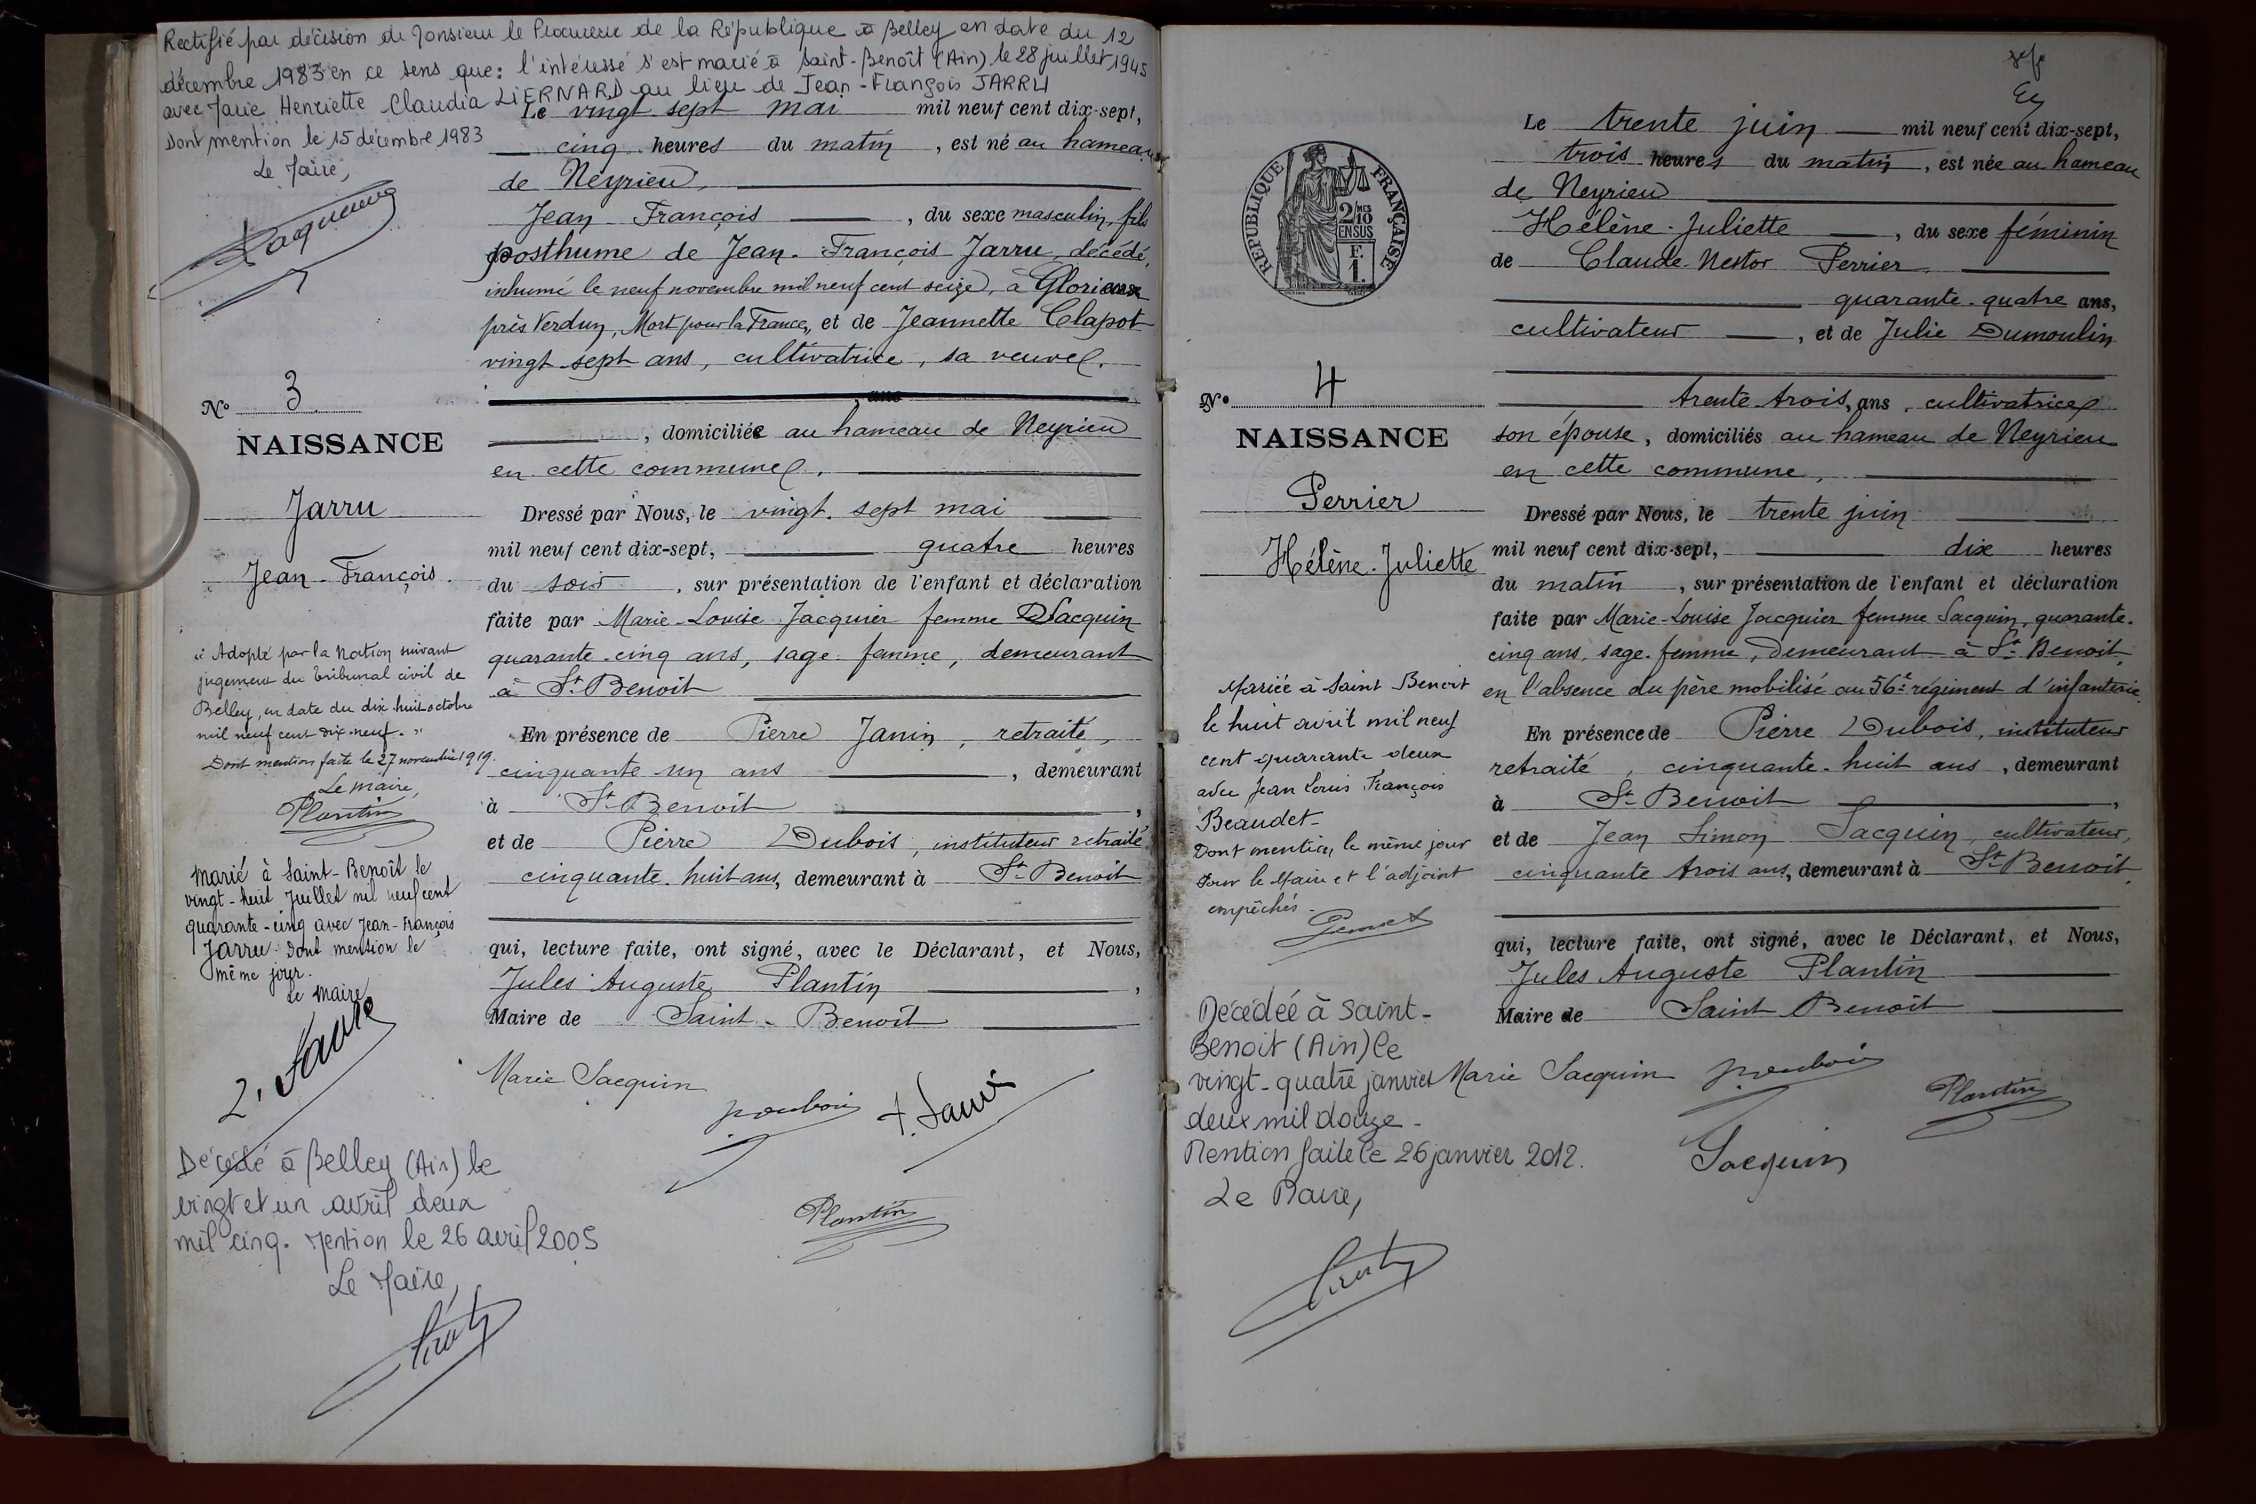 Rectifié par décision de Monsieur le Procureur de la République à Belley en date du 12
décembre 1983 en ce sens que : l'intéressé s'est marié à Saint-Benoît (Ain) le 28 juillet 1945
avec Marie Henriette Claudia LIERNARD au lieu de Jean-François JARRU
Dont mention le 15 décembre 1983
Le Maire,
N° 3
NAISSANCE
Jarru
Jean-François.
"Adopté par la Nation suivant
jugement du tribunal civil de
Belley, en date du dix huit octobre
mil neuf cent dix-neuf."
Dont mention faite le 27 novembre 1919.
Le Maire,
Plantin
Marié à Saint-Benoît le
vingt-huit Juillet mil neuf cent
quarante-cinq avec Jean-François
Jarru. Dont mention le
même jour.
Le Maire
Décédé à Belley (Ain) le
vingt et un avril deux
mil cinq. Mention le 26 avril 2005
Le Maire,
Le vingt sept mai mil neuf cent dix-sept,
cinq heures du matin, est né au hameau
de Neyrieu,
Jean François, du sexe masculin, fils
posthume de Jean-François Jarru, décédé,
inhumé le neuf novembre mil neuf cent seize, à
près Verdun, Mort pour la France, et de Jeannette Clapot
vingt-sept ans, cultivatrice, sa veuve.
ans
, domiciliée au hameau de Neyrieu
en cette commune.
Dressé par Nous, le vingt-sept mai
mil neuf cent dix-sept, quatre heures
du soir, sur présentation de l'enfant et déclaration
faite par Marie-Louise Jacquier femme Sacquin
quarante-cinq ans, sage-femme, demeurant
à St Benoit
En présence de Pierre Janin, retraité,
cinquante un ans, demeurant
à St Benoit,
et de Pierre Dubois, instituteur retraité
cinquante-huit ans, demeurant à St Benoit
qui, lecture faite, ont signé, avec le Déclarant, et Nous,
Jules Auguste Plantin,
Maire de Saint-Benoît
Marie Sacquin
Plantin
REPUBLIQUE FRANÇAISE
2/10 MES
EN SUS
F.
1.
N° 4
NAISSANCE
Perrier
Hélène-Juliette
Mariée à Saint Benoit
le huit avril mil neuf
cent quarante deux
avec Jean Louis François
Beaudet-
Dont mention le même jour
Pour le Maire et l'adjoint
empêchés-
Décédée à Saint-
Benoit (Ain) le
vingt-quatre janvier
deux mil douze-
Mention faite le 26 janvier 2012.
Le Maire,
Le trente juin mil neuf cent dix-sept,
trois heures du matin, est née au hameau
de Neyrieu
Hélène-Juliette, du sexe féminin
de Claude-Nestor Perrier
quarante-quatre ans,
cultivateur, et de Julie Dumoulin
trente-trois, ans, cultivatrice
son épouse, domiciliés au hameau de Neyrieu
en cette commune,
Dressé par Nous, le trente juin
mil neuf cent dix-sept, dix heures
du matin, sur présentation de l'enfant et déclaration
faite par Marie-Louise Jacquier femme Sacquin, quarante-
cinq ans, sage-femme, demeurant à St Benoit,
en l'absence du père mobilisé au 56e régiment d'infanterie
En présence de Pierre Dubois, instituteur
retraité, cinquante-huit ans, demeurant
à St Benoit,
et de Jean Simon Sacquin, cultivateur,
cinquante trois ans, demeurant à St Benoit,
qui, lecture faite, ont signé, avec le Déclarant, et Nous,
Jules Auguste Plantin
Maire de Saint Benoît
Marie Sacquin
Plantin
Sacquin